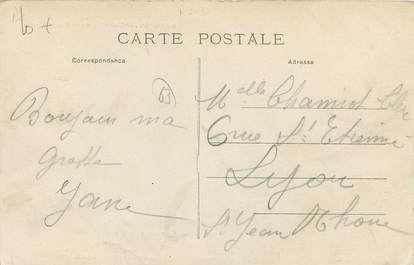 CARTE POSTALE
Correspondance
Adresse
Boujour ma
grosse
Jane
Melle Chamiot
6 rue St Etienne
Lyon
St Jean Rhone